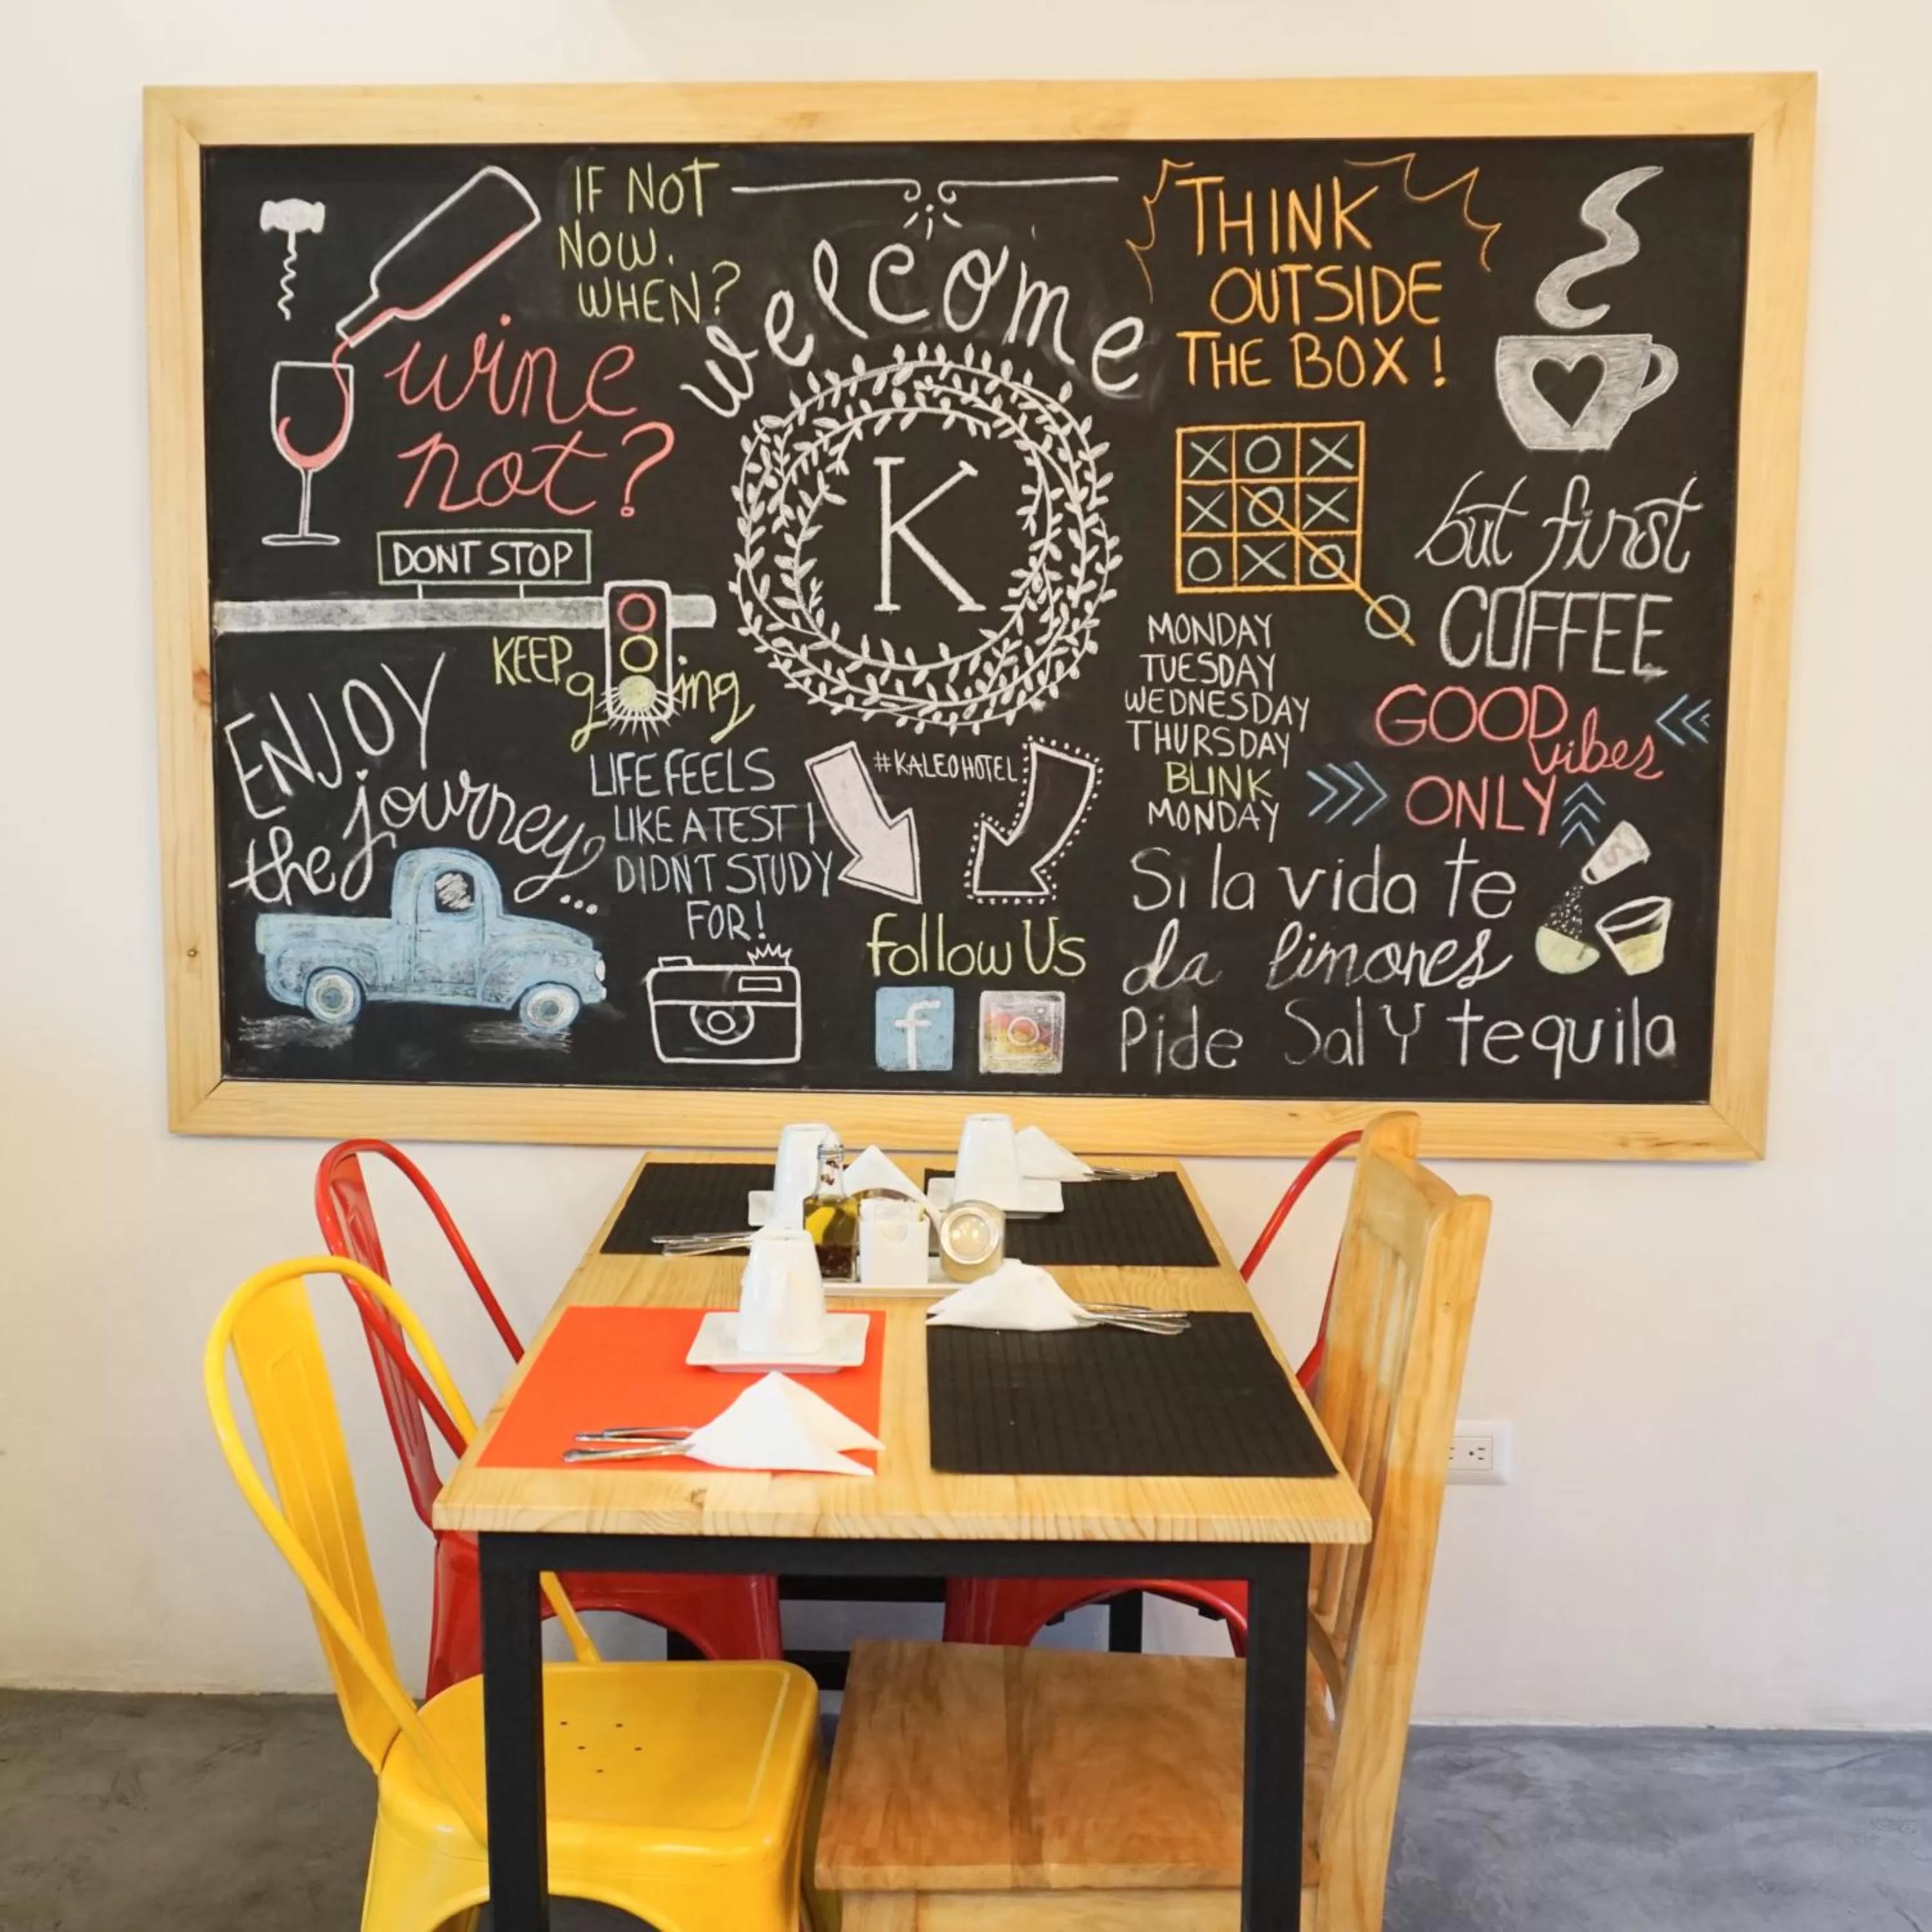 IF NOT
NOW.
WHEN?
welcome
K
THINK
OUTSIDE
THE BOX!
wine
not?
DONT STOP
KEEP
going
ENJOY
the journey...
LIFE FEELS
LIKE A TEST I
DIDNT STUDY
FOR!
#KALEOHOTEL
Follow Us
f
X O X
X O X
O X O
O
but first
COFFEE
MONDAY
TUESDAY
WEDNESDAY
THURSDAY
BLINK
MONDAY
GOOD
vibes
ONLY
Si la vida te
da limones
Pide Sal Y tequila
S